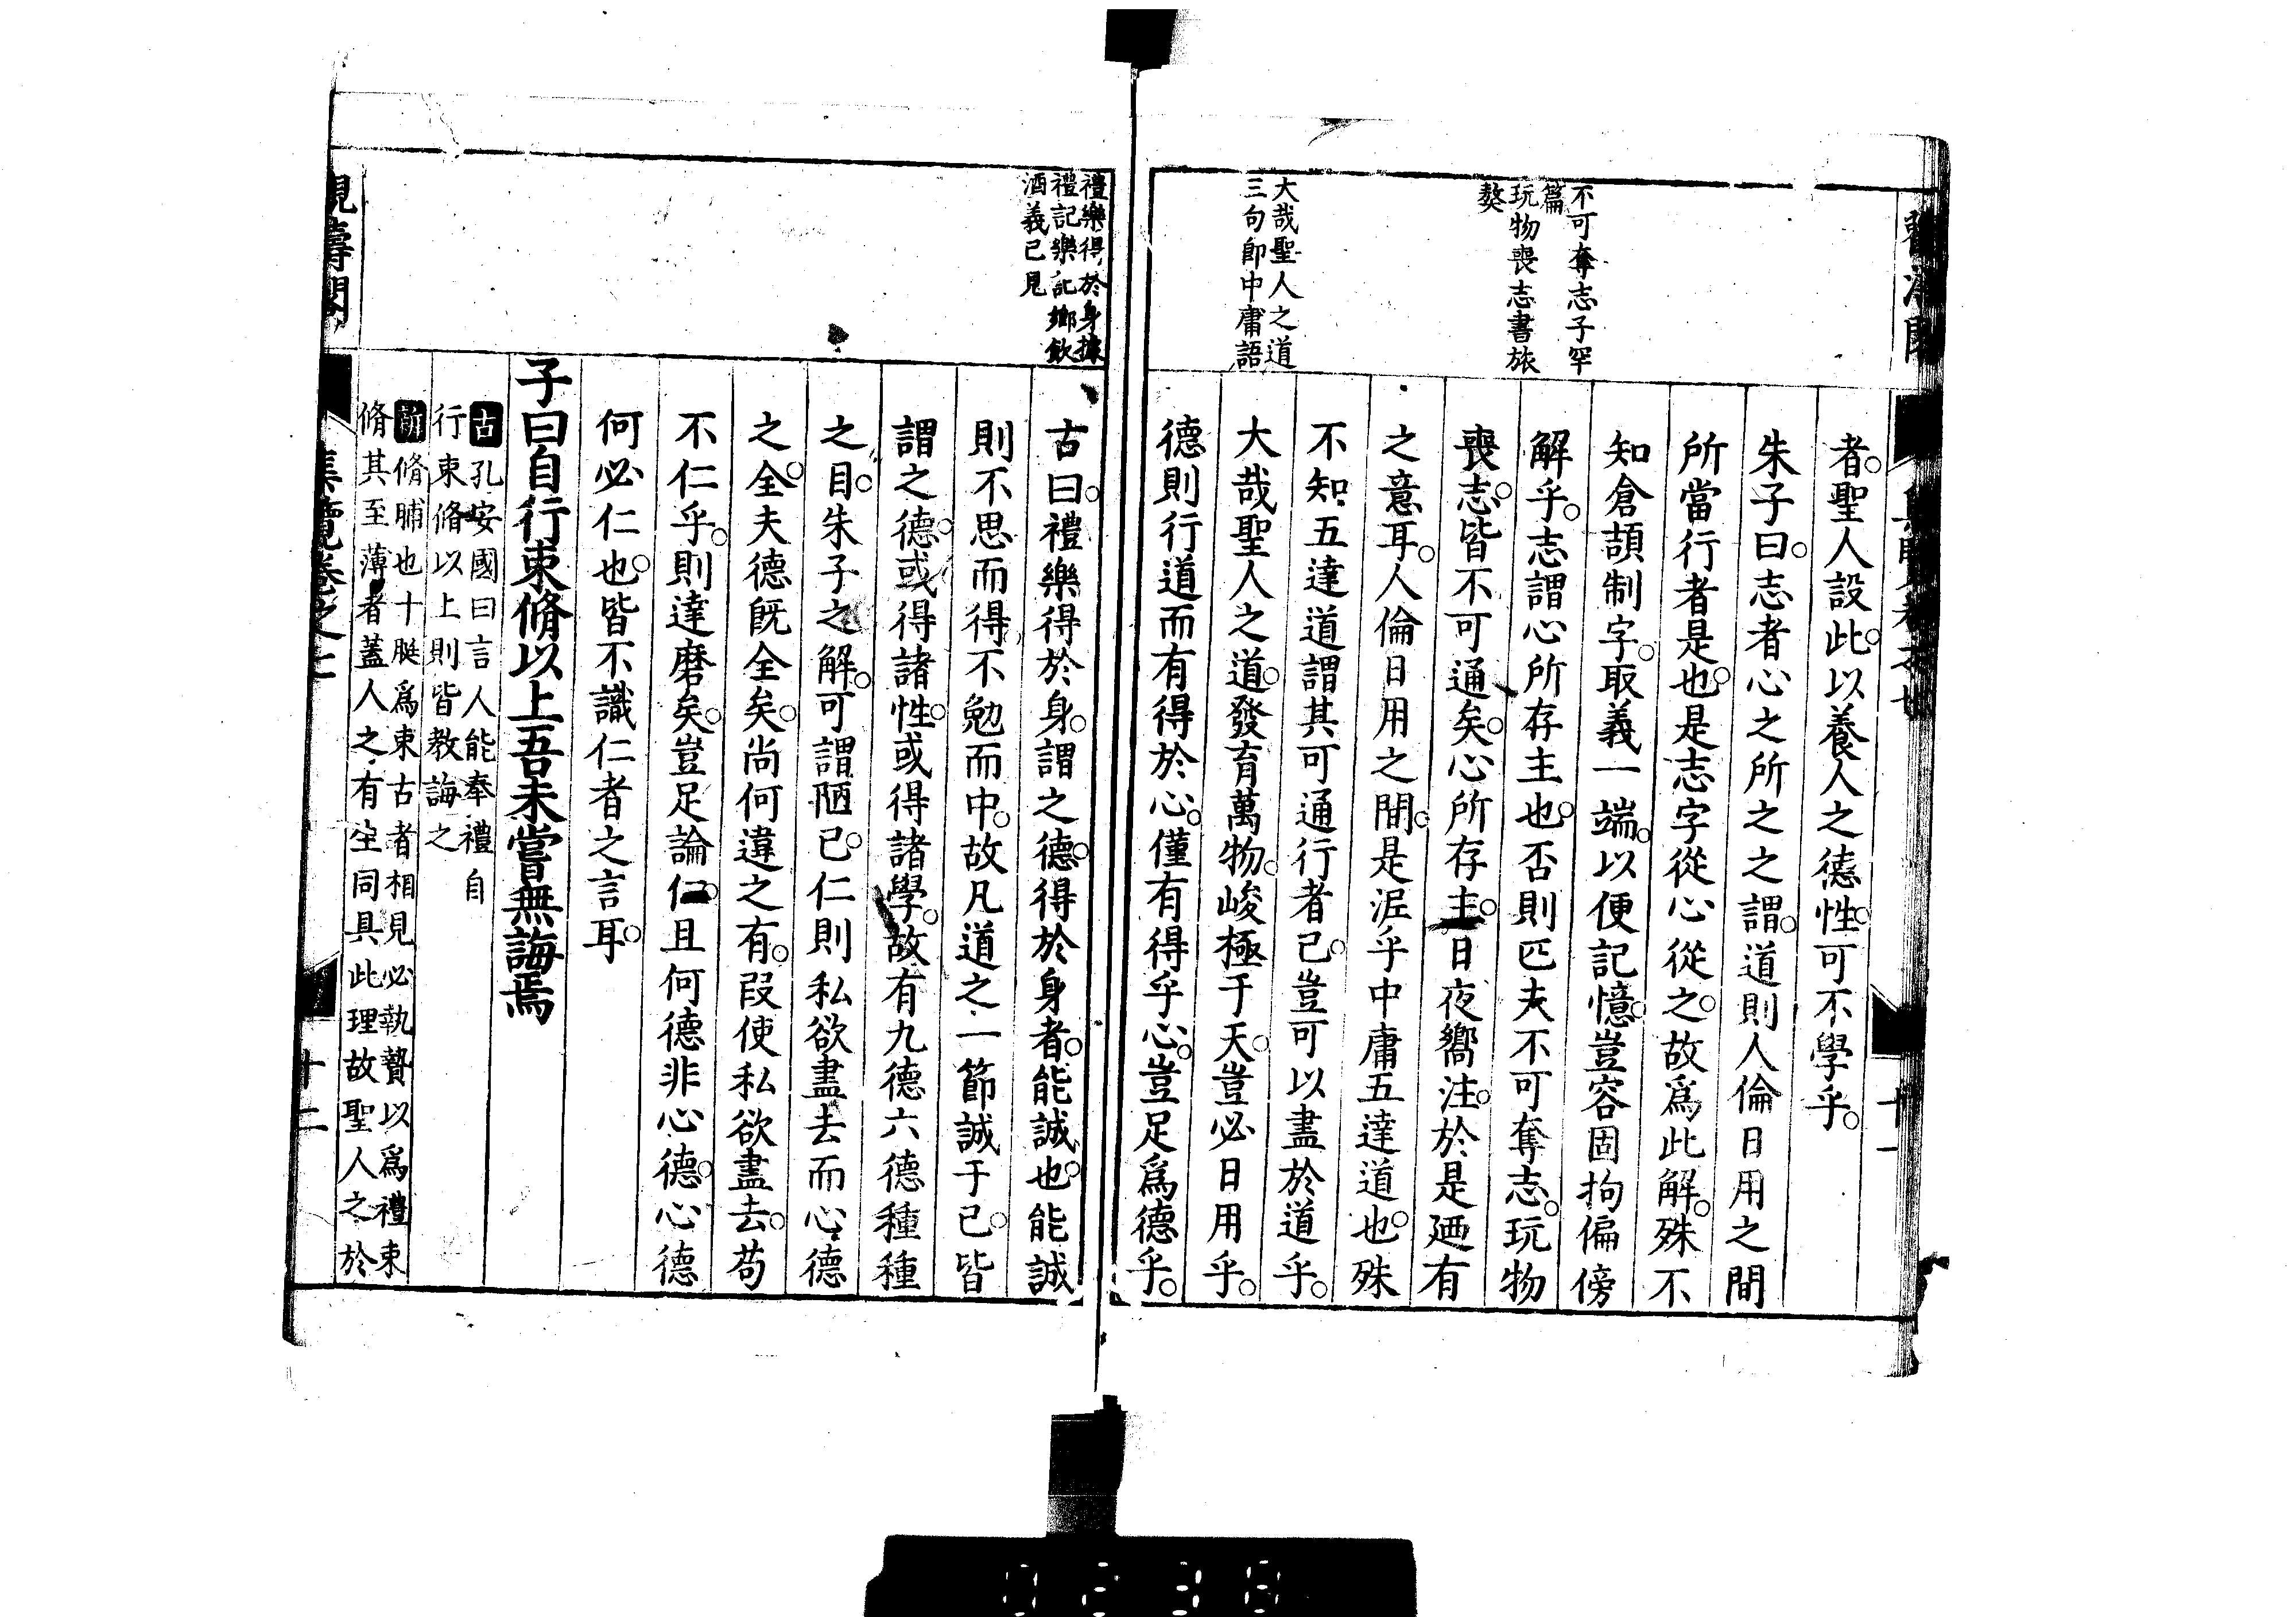 不可奪志子罕
篇
玩物喪志書旅
獒
大哉聖人之道
三句卽中庸語
者。聖人設此。以養人之德性。可不學乎。
朱子曰。志者心之所之之謂。道則人倫日用之間
所當行者是也。是志字從心從之。故爲此解。殊不
知倉頡制字。取義一端。以便記憶。豈容固拘偏傍
解乎。志謂心所存主也。否則匹夫不可奪志。玩物
喪志。皆不可通矣。心所存主。日夜嚮注。於是廼有
之意耳。人倫日用之間。是泥乎中庸五達道也。殊
不知五達道謂其可通行者已。豈可以盡於道乎。
大哉聖人之道。發育萬物。峻極于天。豈必日用乎。
德則行道而有得於心。僅有得乎心。豈足爲德乎。
禮樂得於身據
禮記樂記鄉飲
酒義已見
古曰。禮樂得於身。謂之德。得於身者。能誠也。能誠
則不思而得。不勉而中。故凡道之一節誠于己。皆
謂之德。或得諸性。或得諸學。故有九德六德種種
之目。朱子之解。可謂陋已。仁則私欲盡去而心德
之全。夫德旣全矣。尚何違之有。叚使私欲盡去。苟
不仁乎。則達磨矣。豈足論仁。且何德非心德。心德
何必仁也。皆不識仁者之言耳。
子曰自行束脩以上吾未嘗無誨焉
古孔安國曰言人能奉禮自
行束脩以上則皆教誨之
新脩脯也十脡爲束古者相見必執贄以爲禮束
脩其至薄者蓋人之有生同具此理故聖人之於
集覽卷之七
十二